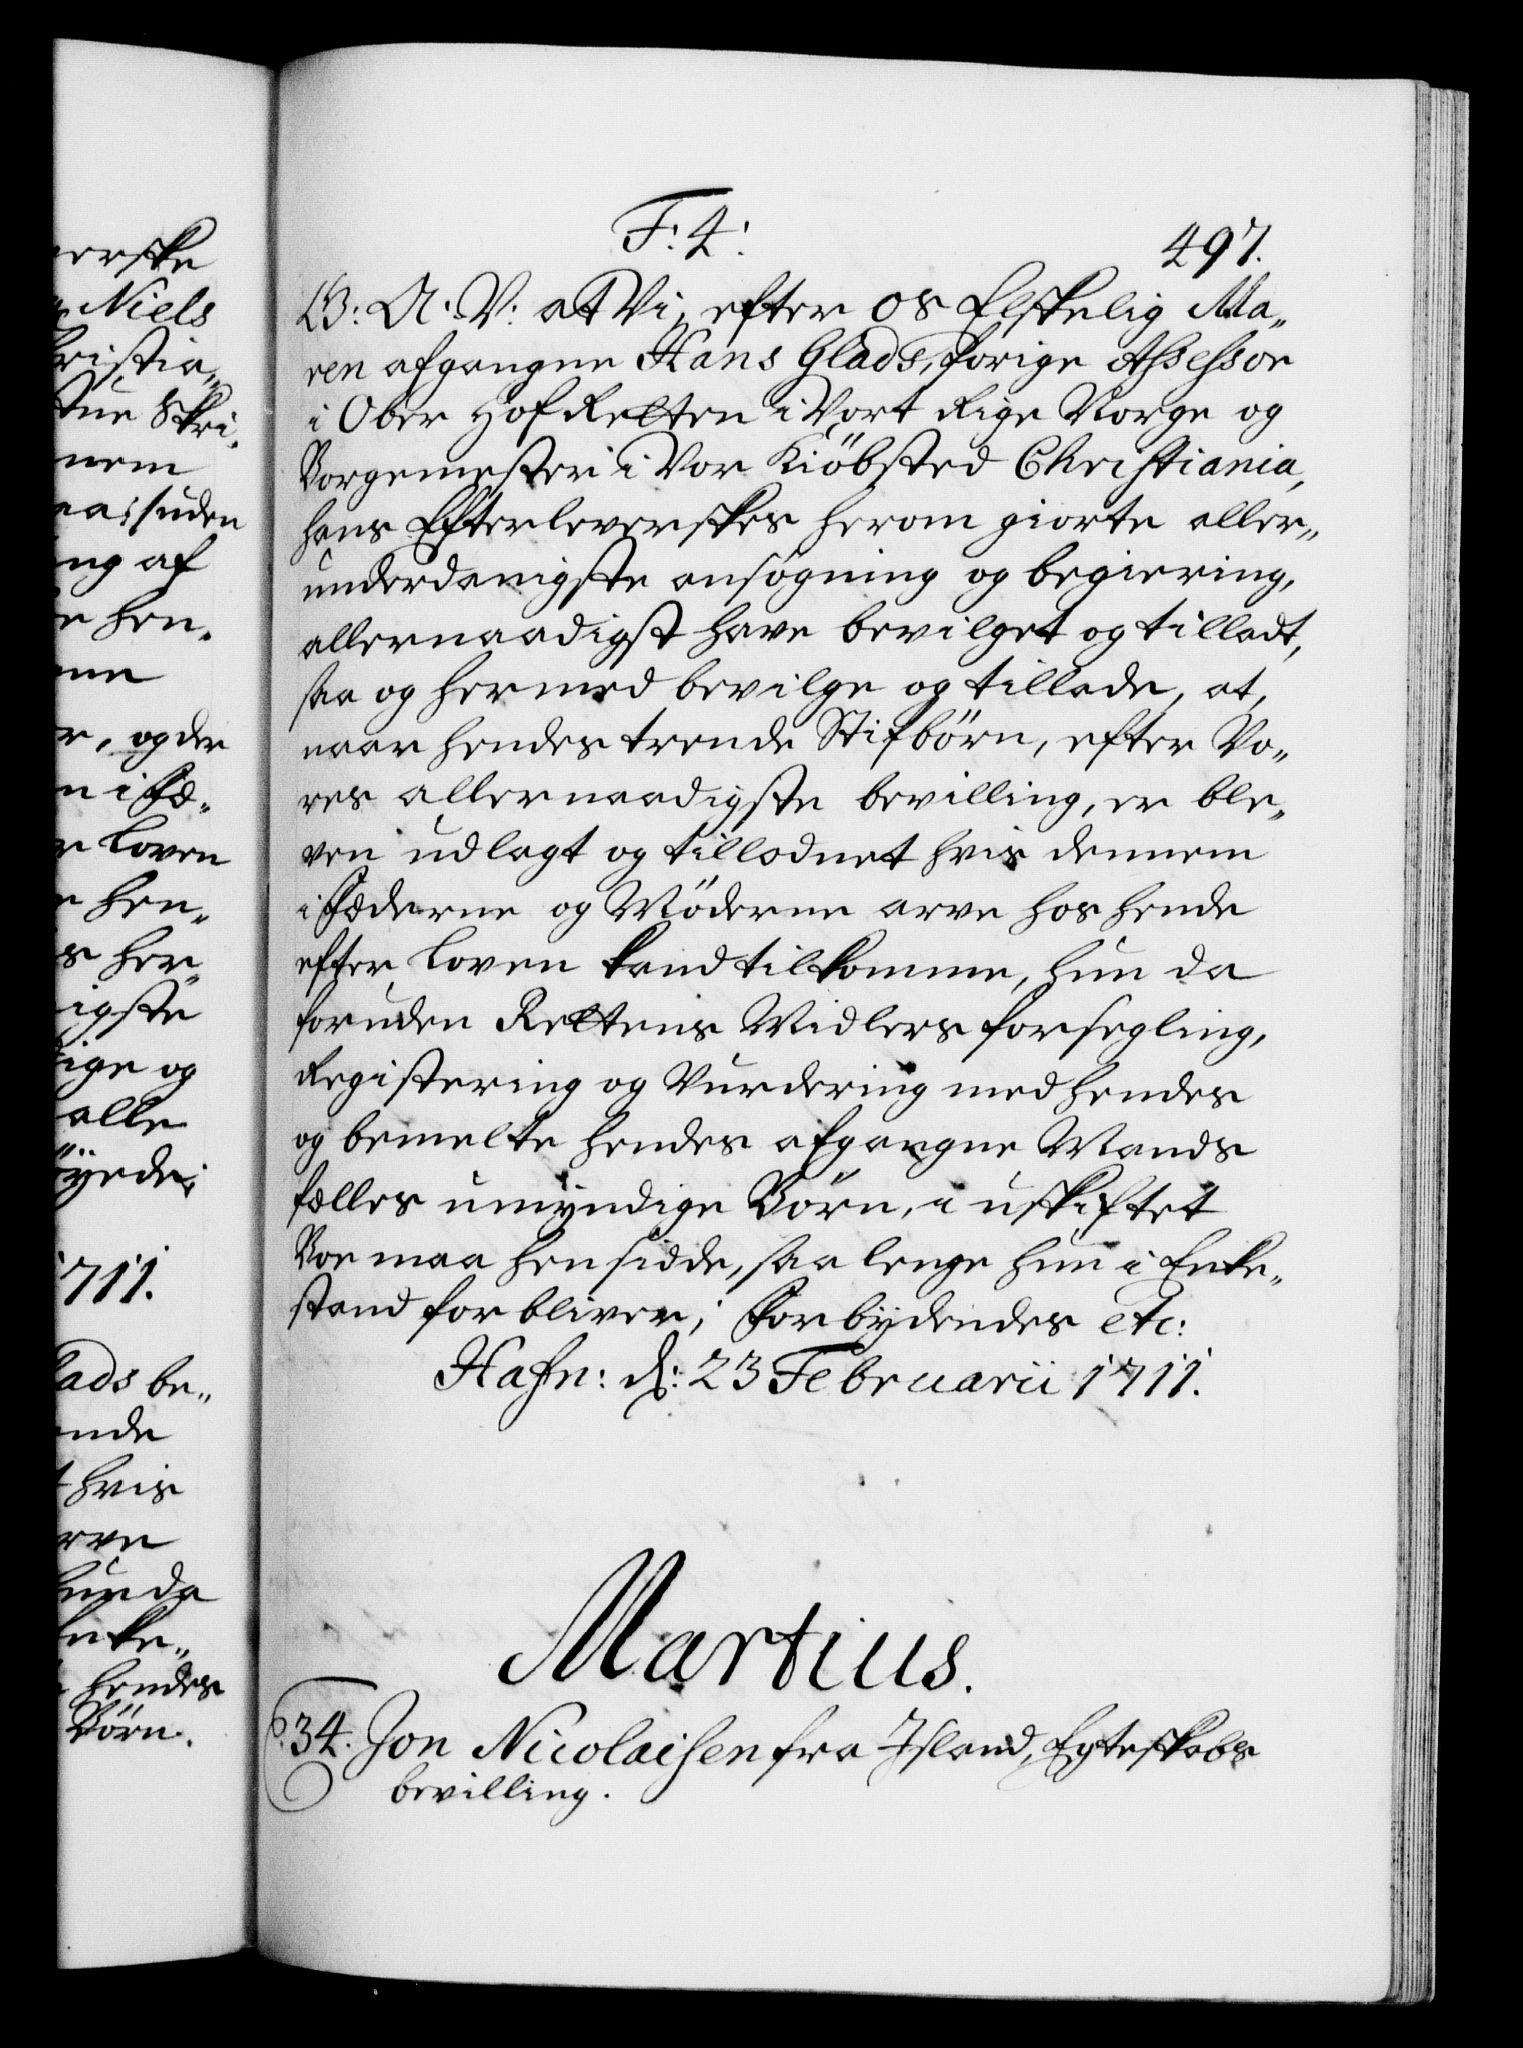 erske
Niels
hristia„
Stue Skri„
nem
uden
ng af
e hen„
r, og der
n i Fæ„
r Loven
e hen„
s her„
igste
ige og
alle
1711.
lads be„
ende
t hvis
rve
hun da
Enke„
hendes
Børn.
F: 4: 497.
G: A: V: at Vi, efter os Elskelig Ma„
ren afgangne Hans Glads, forige Assessor
i Ober Hof Retten i Vort Rige Norge og
Borgemester i Vor Kiöbsted Christiania,
hans Efterleverskes herom giorte aller„
underdanigste ansøgning og begiering,
allernaadigst have bevilget og tilladt,
saa og hermed bevilge og tillade, at,
naar hendes trende Stifbörn, efter Vo„
res allernaadigste bevilling, er ble„
ven udlagt og tillodnet hvis dennem
i Fæderne og Möderne arve hos hende
efter Loven kand tilkomme, hun da
foruden Rettens Midlers forsegling,
Registering og Vurdering med hendes
og bemelte hendes afgangne Mands
fælles umyndige Börn, i uskiftet
Boe maa hensidde, saa lenge hun i Enke„
stand forbliver; Forbydendes etc:
Hafn: d: 23 Februarii 1711.
Martius.
34. Jon Nicolaisen fra Island, Egteskabs
bevilling.